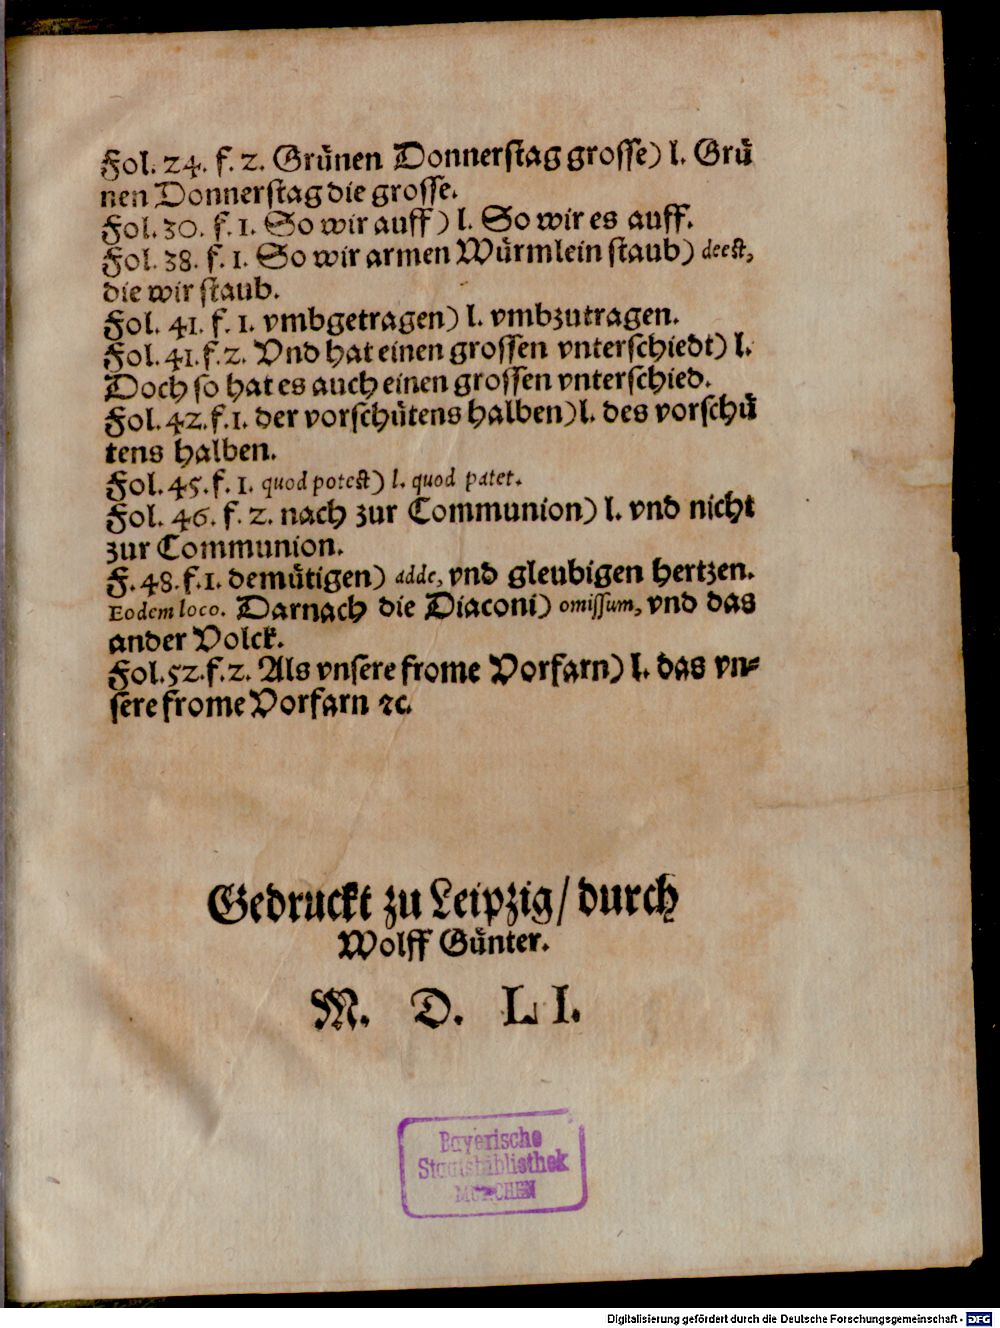 Fol. 24. f. 2. Grünen Donnerstag grosse) l. Grü
nen Donnerstag die grosse.
Fol. 30. f. 1. So wir auff) l. So wir es auff.
Fol. 38. f. 1. So wir armen Würmlein staub) deest,
die wir staub.
Fol. 41. f. 1. vmbgetragen) l. vmbzutragen.
Fol. 41. f. 2. Vnd hat einen grossen vnterschiedt) l.
Doch so hat es auch einen grossen vnterschied.
Fol. 42. f. 1. der vorschütens halben) l. des vorschü
tens halben.
Fol. 45. f. 1. quod potest) l. quod patet.
Fol. 46. f. 2. nach zur Communion) l. vnd nicht
zur Communion.
F. 48. f. 1. demütigen) adde, vnd gleubigen hertzen.
Eodem loco. Darnach die Diaconi) omissum, vnd das
ander Volck.
Fol. 52. f. 2. Als vnsere frome Vorfarn) l. das vn=
sere frome Vorfarn ꝛc.
Gedruckt zu Leipzig/ durch
Wolff Günter.
M. D. L I.
Bayerische
Staatsbibliothek
MÜNCHEN
Digitalisierung gefördert durch die Deutsche Forschungsgemeinschaft - DFG